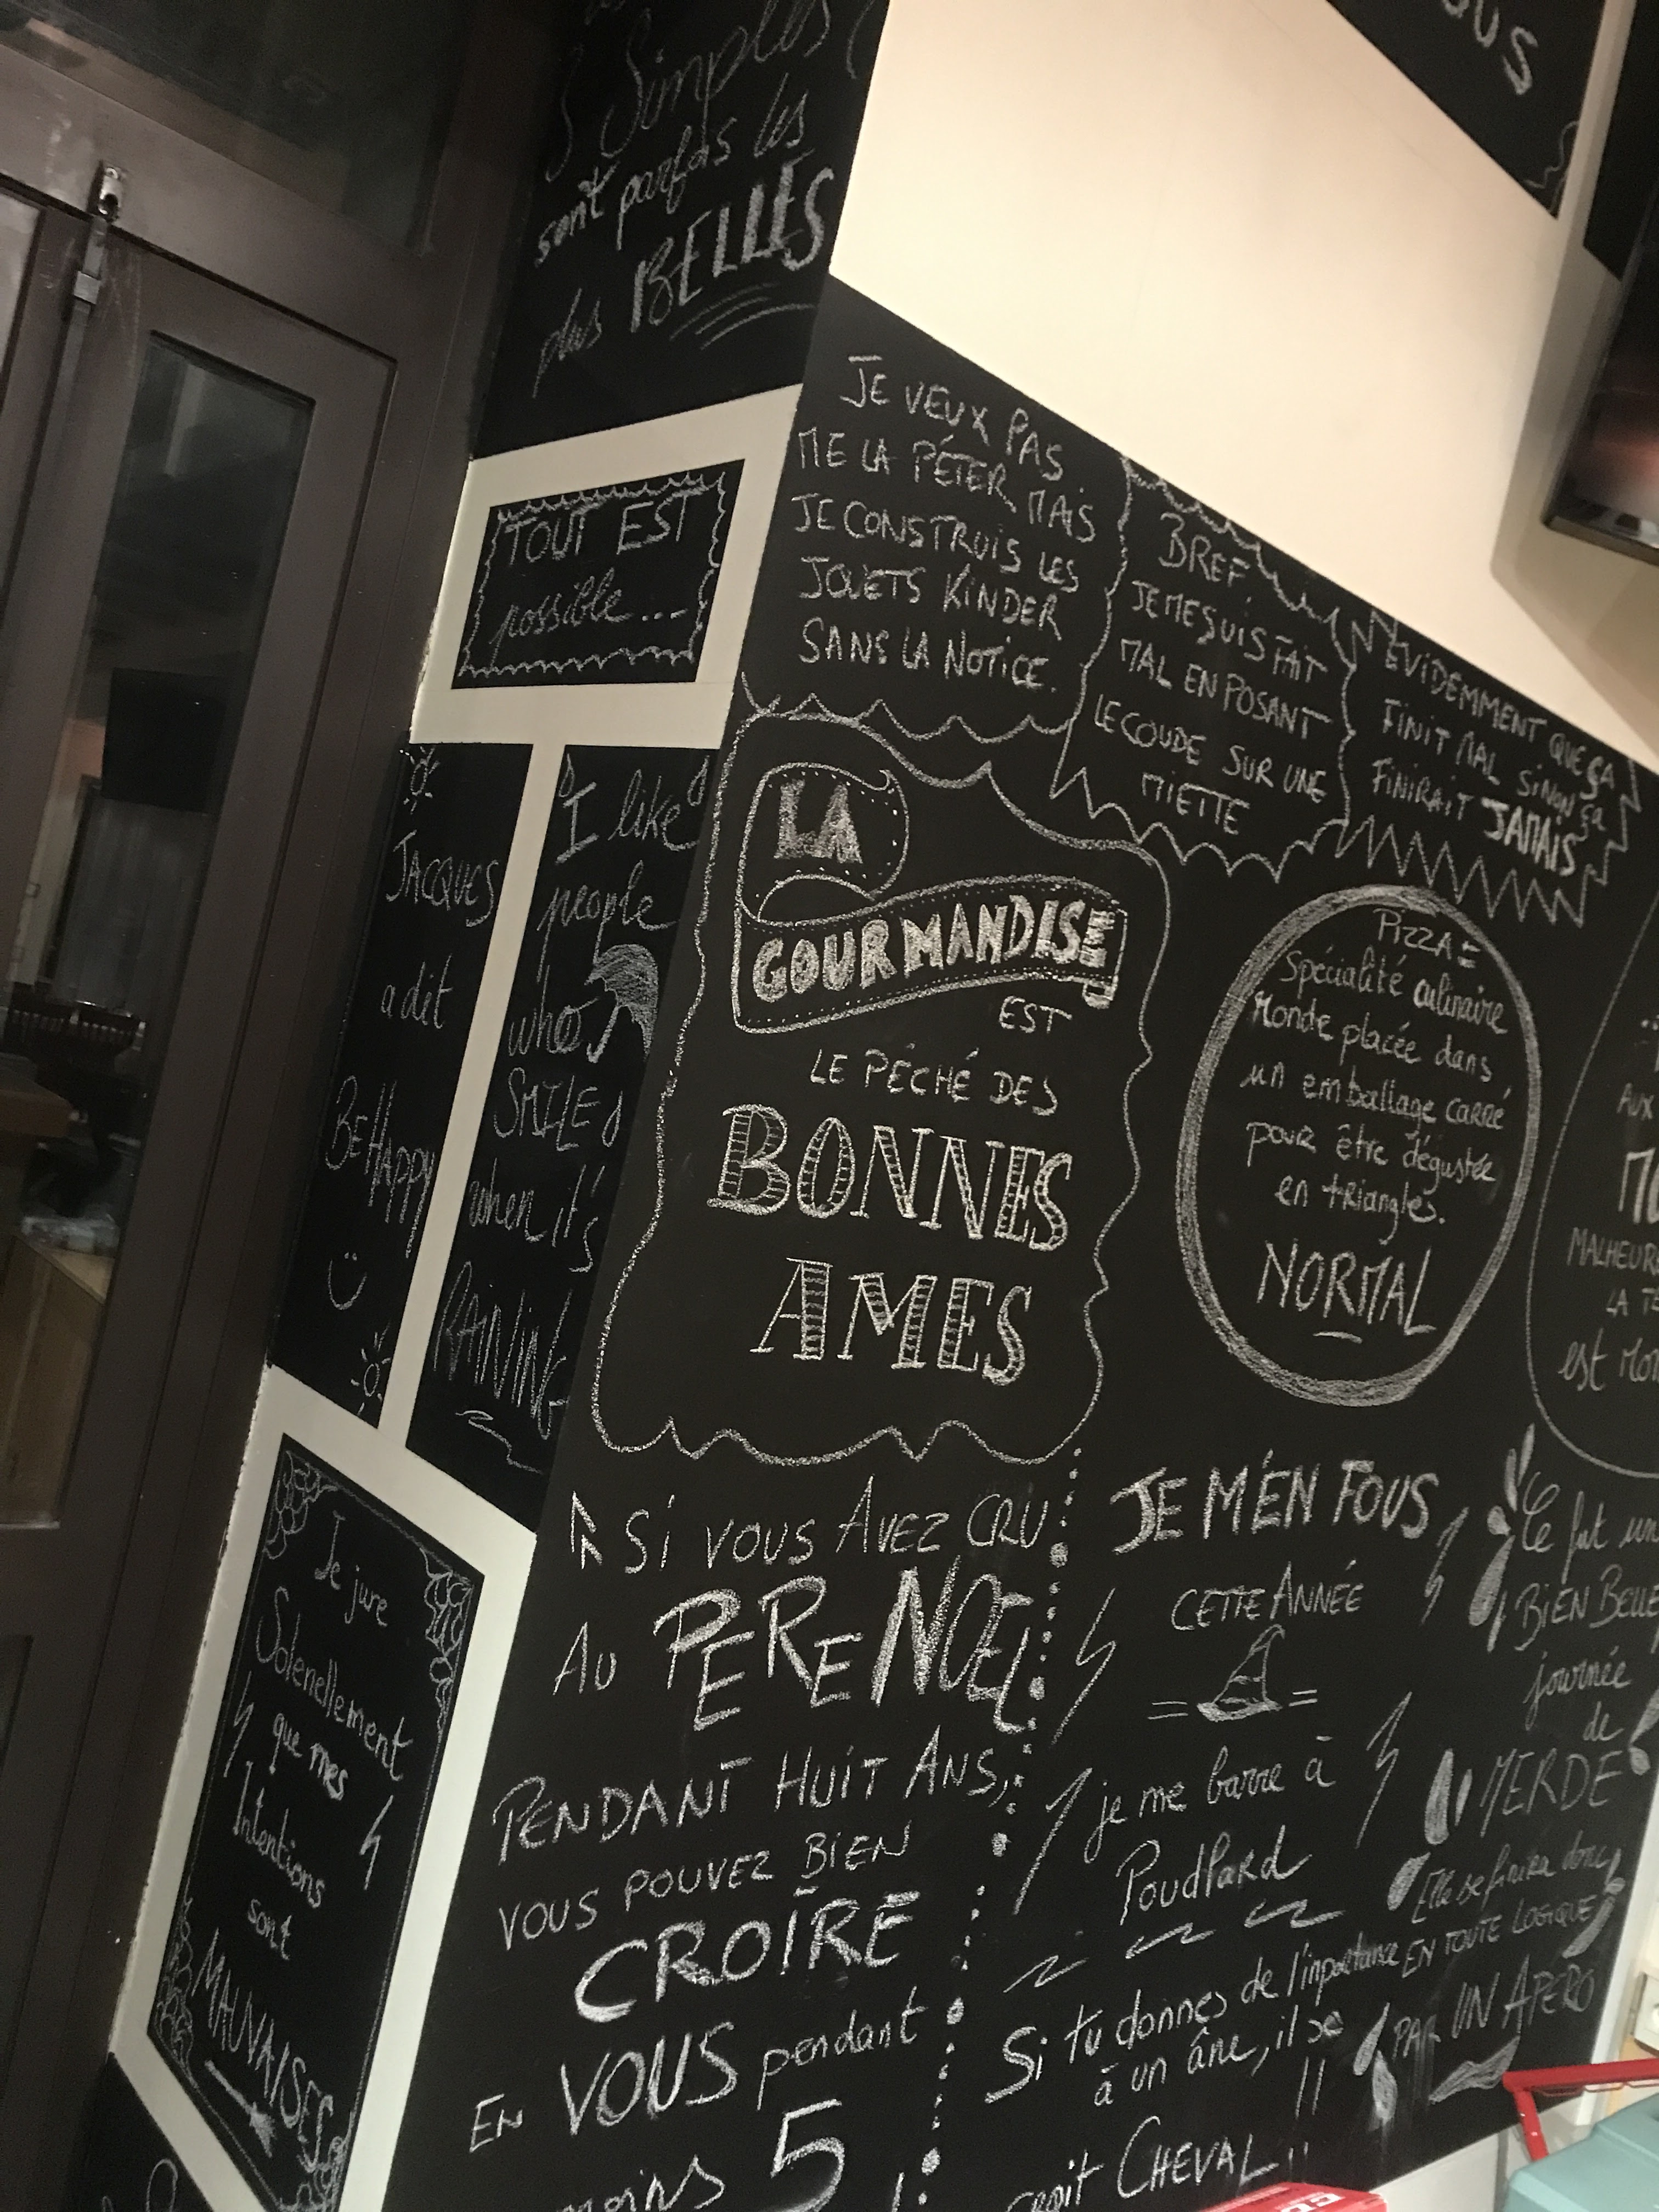 Simples
sont parfois les
plus BELLES
TOUT EST
possible...
JACQUES
a dit
BE HAPPY
I like
people
who
SMILE
when it's
RAINING
Je jure
Solenellement
que mes
Intentions
sont
MAUVAISES
JE VEUX PAS
ME LA PÉTER, MAIS
JE CONSTRUIS LES
JOUETS KINDER
SANS LA NOTICE.
BREF,
JE ME SUIS FAIT
MAL EN POSANT
LE COUDE SUR UNE
MIETTE
EVIDEMMENT QUE ÇA
FINIT MAL SINON ça
FINIRAIT JAMAIS
LA
GOURMANDISE
EST
LE PÉCHÉ DES
BONNES
AMES
PIZZA =
Spécialité culinaire
Ronde placée dans
un emballage carré
pour être dégustée
en triangles.
NORMAL
AUX
MALHEUR
LA TE
est
SI VOUS AVEZ CRU
AU PERE NOEL
PENDANT HUIT ANS,
VOUS POUVEZ BIEN
CROIRE
EN VOUS pendant
moins 5
JE M'EN FOUS
CETTE ANNÉE
je me barre à
Poudlard
Si tu donnes de l'importance
à un âne, il se
croit CHEVAL !!
Ce fut un
BIEN BELLE
journée
de
MERDE
Elle se finira donc
EN TOUTE LOGIQUE
PAR UN APERO
OUS